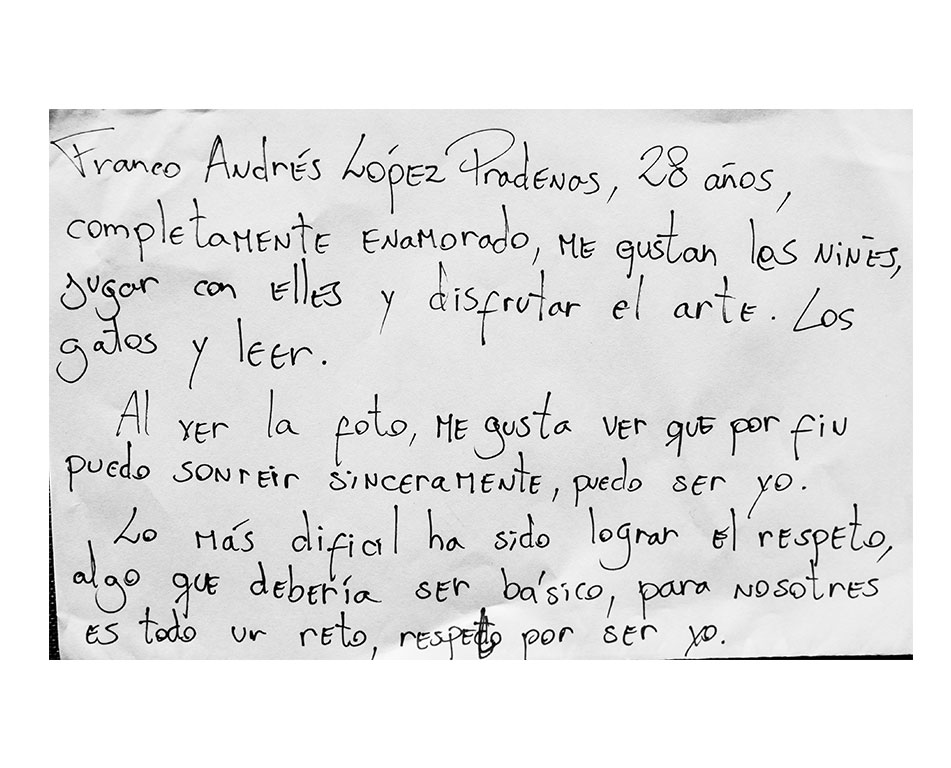 Franco Andrés López Pradenas, 28 años,
completamente enamorado, me gustan les niñes,
jugar con elles y disfrutar el arte. Los
gatos y leer.
Al ver la foto, me gusta ver que por fin
puedo sonreir sinceramente, puedo ser yo.
Lo más dificil ha sido lograr el respeto,
algo que debería ser básico, para nosotres
es todo un reto, respeto por ser yo.